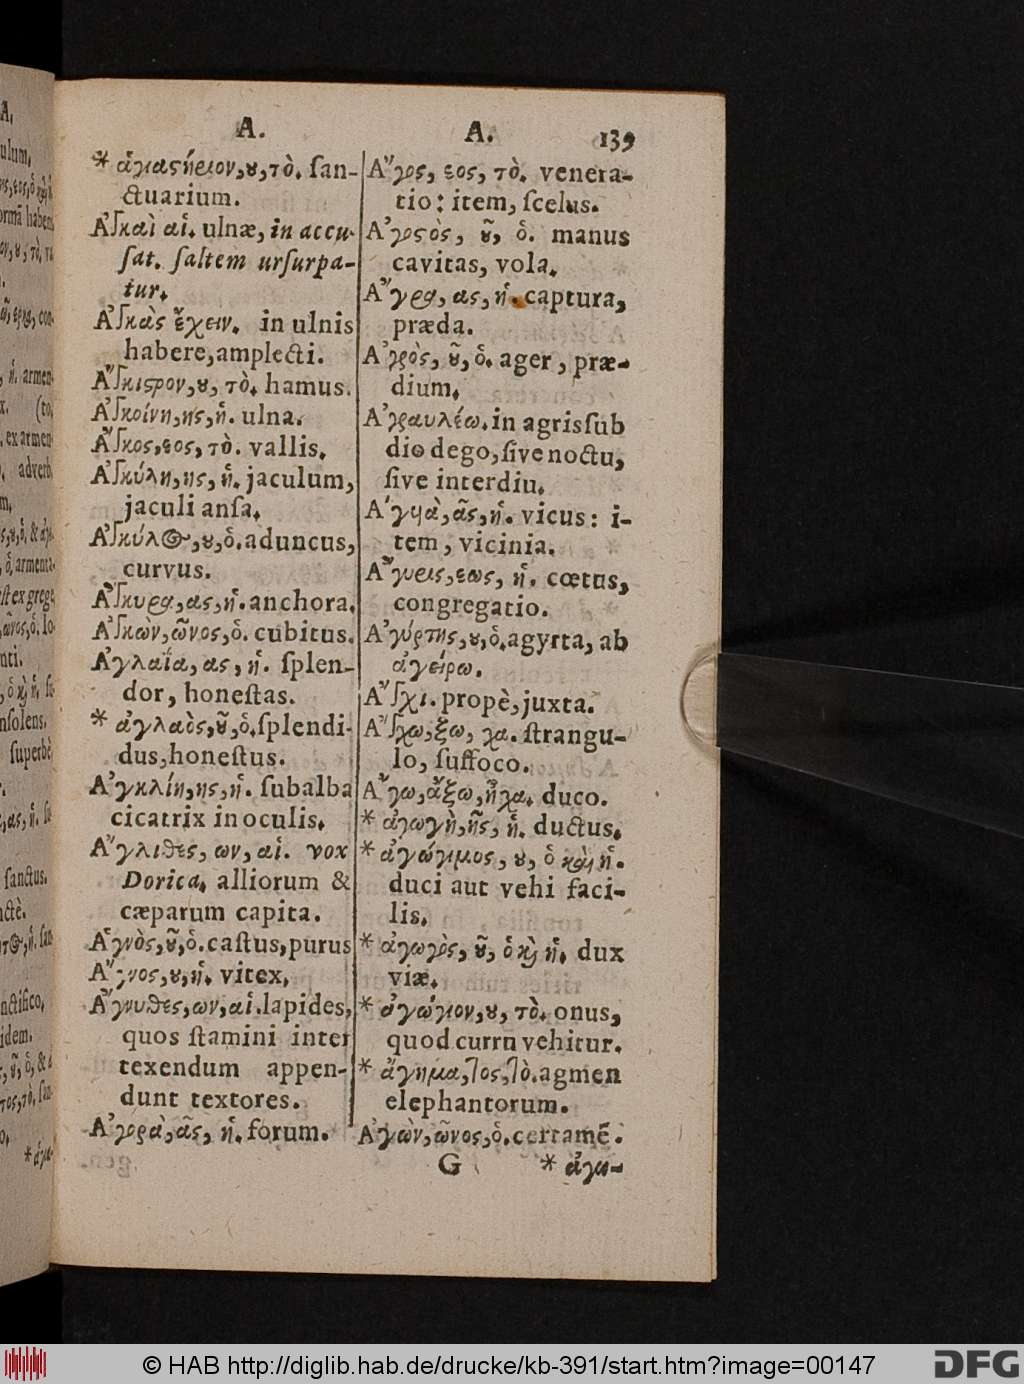 A.
* ἁγιαστήριον, ου, τὸ. ſan-
ctuarium.
Ἀγκαὶ αἱ. ulnæ, in accu-
ſat. ſaltem urſurpa-
tur.
Ἀγκὰς ἔχειν. in ulnis
habere, amplecti.
Ἄγκιστρον, ου, τὸ. hamus.
Ἀγκοίνη, ης, ἡ. ulna.
Ἄγκος, εος, τὸ. vallis.
Ἀγκύλη, ης, ἡ. jaculum,
jaculi anſa.
Ἀγκύλος, ου, ὁ. aduncus,
curvus.
Ἄγκυρα, ας, ἡ. anchora.
Ἀγκὼν, ῶνος, ὁ. cubitus.
Ἀγλαΐα, ας, ἡ. ſplen-
dor, honeſtas.
* ἀγλαὸς, οῦ, ὁ. ſplendi-
dus, honeſtus.
Ἀγκλίη, ης, ἡ. ſubalba
cicatrix in oculis.
Ἄγλιθες, ων, αἱ. vox
Dorica. alliorum &
cæparum capita.
Ἁγνὸς, οῦ, ὁ. caſtus, purus
Ἄγνος, ου, ἡ. vitex.
Ἄγνυθες, ων, αἱ. lapides,
quos ſtamini inter
texendum appen-
dunt textores.
Ἀγορὰ, ᾶς, ἡ. forum.
A. 139
Ἄγος, εος, τὸ. venera-
tio: item, ſcelus.
Ἀγοστὸς, οῦ, ὁ. manus
cavitas, vola.
Ἄγρα, ας, ἡ. captura,
præda.
Ἀγρὸς, οῦ, ὁ. ager, præ-
dium.
Ἀγραυλέω. in agris ſub
dio dego, ſive noctu,
ſive interdiu.
Ἀγυιὰ, ᾶς, ἡ. vicus: i-
tem, vicinia.
Ἄγυρις, εως, ἡ. cœtus,
congregatio.
Ἀγύρτης, ου, ὁ. agyrta, ab
ἀγείρω.
Ἄγχι. propè, juxta.
Ἄγχω, ξω, χα. ſtrangu-
lo, ſuffoco.
Ἄγω, ἄξω, ἦχα. duco.
* ἀγωγὴ, ῆς, ἡ. ductus.
* ἀγώγιμος, ου, ὁ καὶ ἡ.
duci aut vehi faci-
lis.
* ἀγωγὸς, οῦ, ὁ καὶ ἡ. dux
viæ.
* ἀγώγιον, ου, τὸ. onus,
quod curru vehitur.
* ἄγημα, τος, τὸ. agmen
elephantorum.
Ἀγὼν, ῶνος, ὁ. certamē.
G * ἀγω-
© HAB http://diglib.hab.de/drucke/kb-391/start.htm?image=00147
DFG